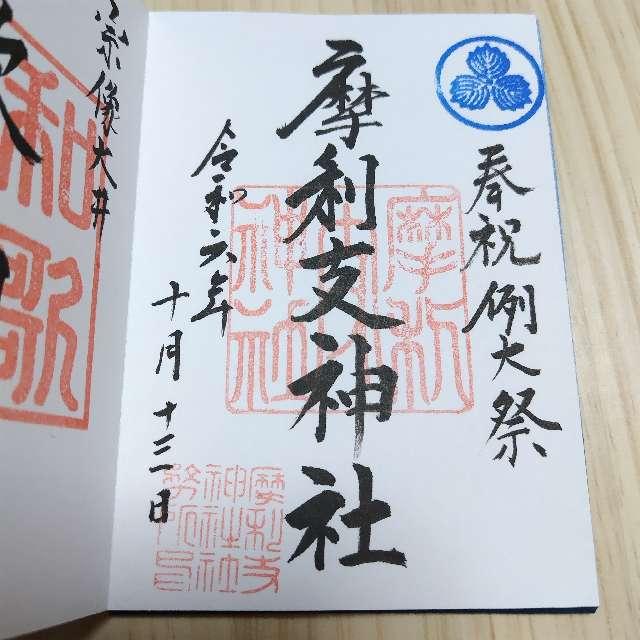 奉祝例大祭
摩利支神社
摩利支神社
令和六年
十月十三日
摩利支
神社社
務所印
宗像大井
和歌